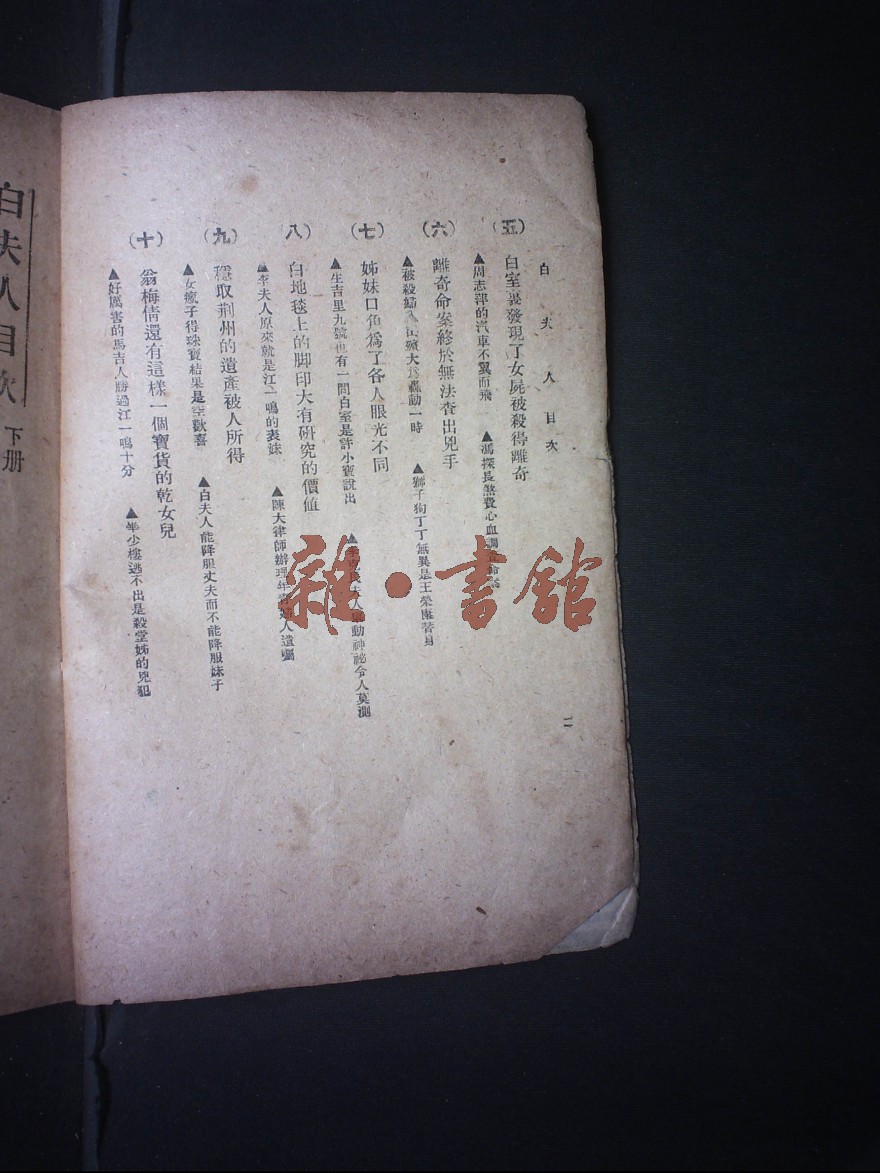 白夫人目次
二
(五) 白室裏發現了女屍被殺得離奇
▲周志萍的汽車不翼而飛 ▲馮探長煞費心血
(六) 離奇命案終於無法查出兇手
▲被殺婦人 大 轟動一時 ▲獅子狗丁丁無異是王榮 替身
(七) 姊妹口角爲了各人眼光不同
▲生吉里九號也有一間白室是許小寶說出 ▲ 夫人 動神祕令人莫測
八 白地毯上的脚印大有研究的價值
▲李夫人原來就是江一鳴的表妹 ▲陳大律師辦理年 婦人遺囑
(九) 穩取荆州的遺產被人所得
▲女瘋子得珠寶結果是空歡喜 ▲白夫人能降服丈夫而不能降服妹子
(十) 翁梅倩還有這樣一個寶貨的乾女兒
▲好厲害的馬吉人勝過江一鳴十分 ▲ 少樓逃不出是殺堂姊的兇犯
白夫人目次 下册
雜·書館